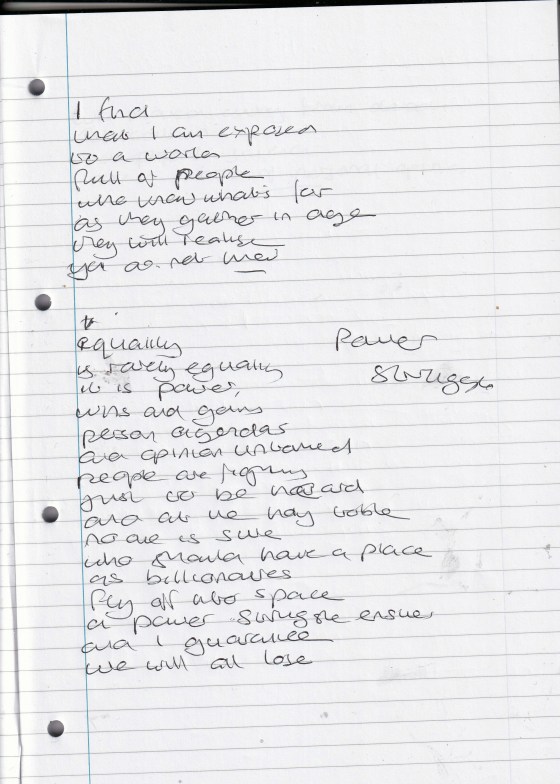 I find
that I am exposed
to a world
full of people
who know what's far
as they gather in age
they will realise
yet do not
equality
Power
is rarely equality
Struggle
it is power,
wins and gains
person agendas
and opinion untamed
people are fighting
just to be heard
and at the
no one is sure
who should have a place
as billionaires
fly off into space
a power struggle ensues
and I guarantee
we will all lose